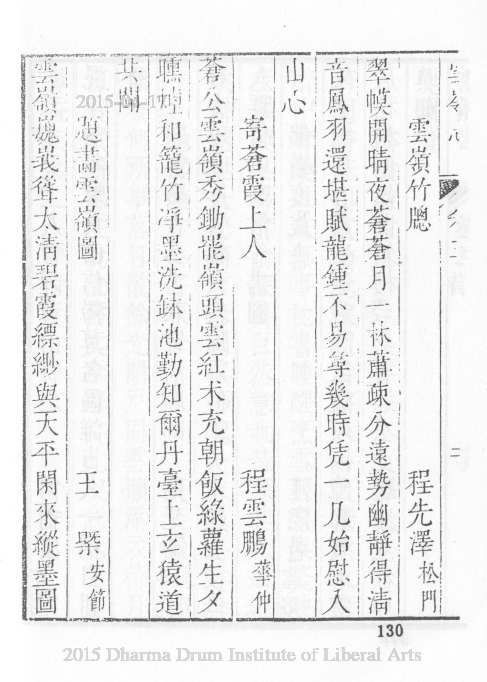 雲嶺竹牕
程先澤松門
翠幙開晴夜蒼蒼月一林蕭疎分遠勢幽靜得清
音鳳羽還堪賦龍鍾不易尋幾時凭一几始慰入
山心
寄蒼霞上人
程雲鵬華仲
蒼公雲嶺秀鋤罷嶺頭雲紅朮充朝飯綠蘿生夕
曛煙和籠竹凈墨洗鉢池勤知爾丹臺上玄猿道
共聞
題畵雲嶺圖
王槩安節
雲嶺巍峩聳太清碧霞縹緲與天平閑來縱墨圖
二
130
2015-04-17
2015 Dharma Drum Institute of Liberal Arts